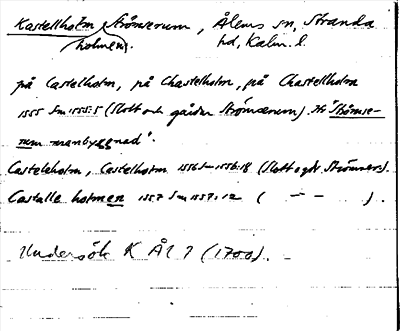 Kastellholm Strömserum, Ålems sn, Stranda
holmen. hd, Kalm. l.
på Castelholm, på Chastelholm, på Chastellholm
1555 Sm 1555:5 (Slott och gården Strömserum). Str "Strömse-
rum manbyggnad".
Casteleholm, Castelholm 1556 Sm 1556:18 (Slott o gdr Strömsers).
Castalle holmen 1557 Sm 1557:12 ( — — ).
Undersök K Ål 7 (1700).